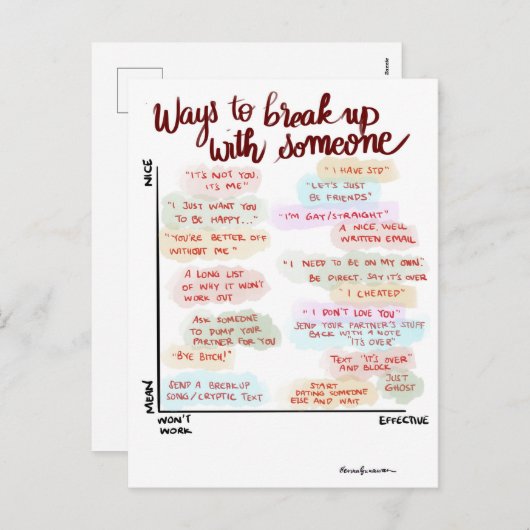 Ways to break up
with someone
NICE
"IT'S NOT YOU,
IT'S ME"
"I HAVE STD"
"LET'S JUST
BE FRIENDS"
"I JUST WANT YOU
TO BE HAPPY..."
"I'M GAY/STRAIGHT"
A NICE, WELL
WRITTEN EMAIL
"YOU'RE BETTER OFF
WITHOUT ME"
"I NEED TO BE ON MY OWN"
BE DIRECT. SAY IT'S OVER
A LONG LIST
OF WHY IT WON'T
WORK OUT
"I CHEATED"
"I DON'T LOVE YOU"
ASK SOMEONE
TO DUMP YOUR
PARTNER FOR YOU
SEND YOUR PARTNER'S STUFF
BACK WITH A NOTE
"IT'S OVER"
"BYE BITCH!"
TEXT "IT'S OVER"
AND BLOCK
JUST
GHOST
SEND A BREAKUP
SONG/CRYPTIC TEXT
START
DATING SOMEONE
ELSE AND WAIT
MEAN
WON'T
WORK
EFFECTIVE